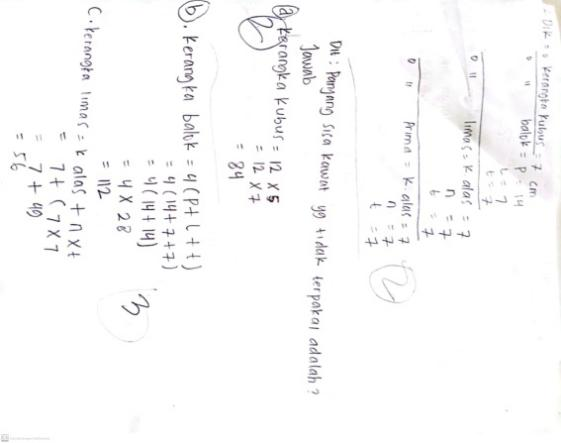 Dik = ° kerangka kubus = 7 cm
° " balok = P = 14
L = 7
t = 7
° " limas = k alas = 7
n = 7
t = 7
° " Prisma = k. alas = 7
n = 7
t = 7
2
Dit : Panjang sisa kawat yg tidak terpakai adalah ?
Jawab
(a) Kerangka kubus = 12 x s
= 12 x 7
= 84
(b). kerangka balok = 4 (P + L + t)
= 4 (14 + 7 + 7)
= 4 (14 + 14)
= 4 x 28
= 112
3
C. kerangka limas = k alas + n x t
= 7 + (7 x 7
= 7 + 49
= 56